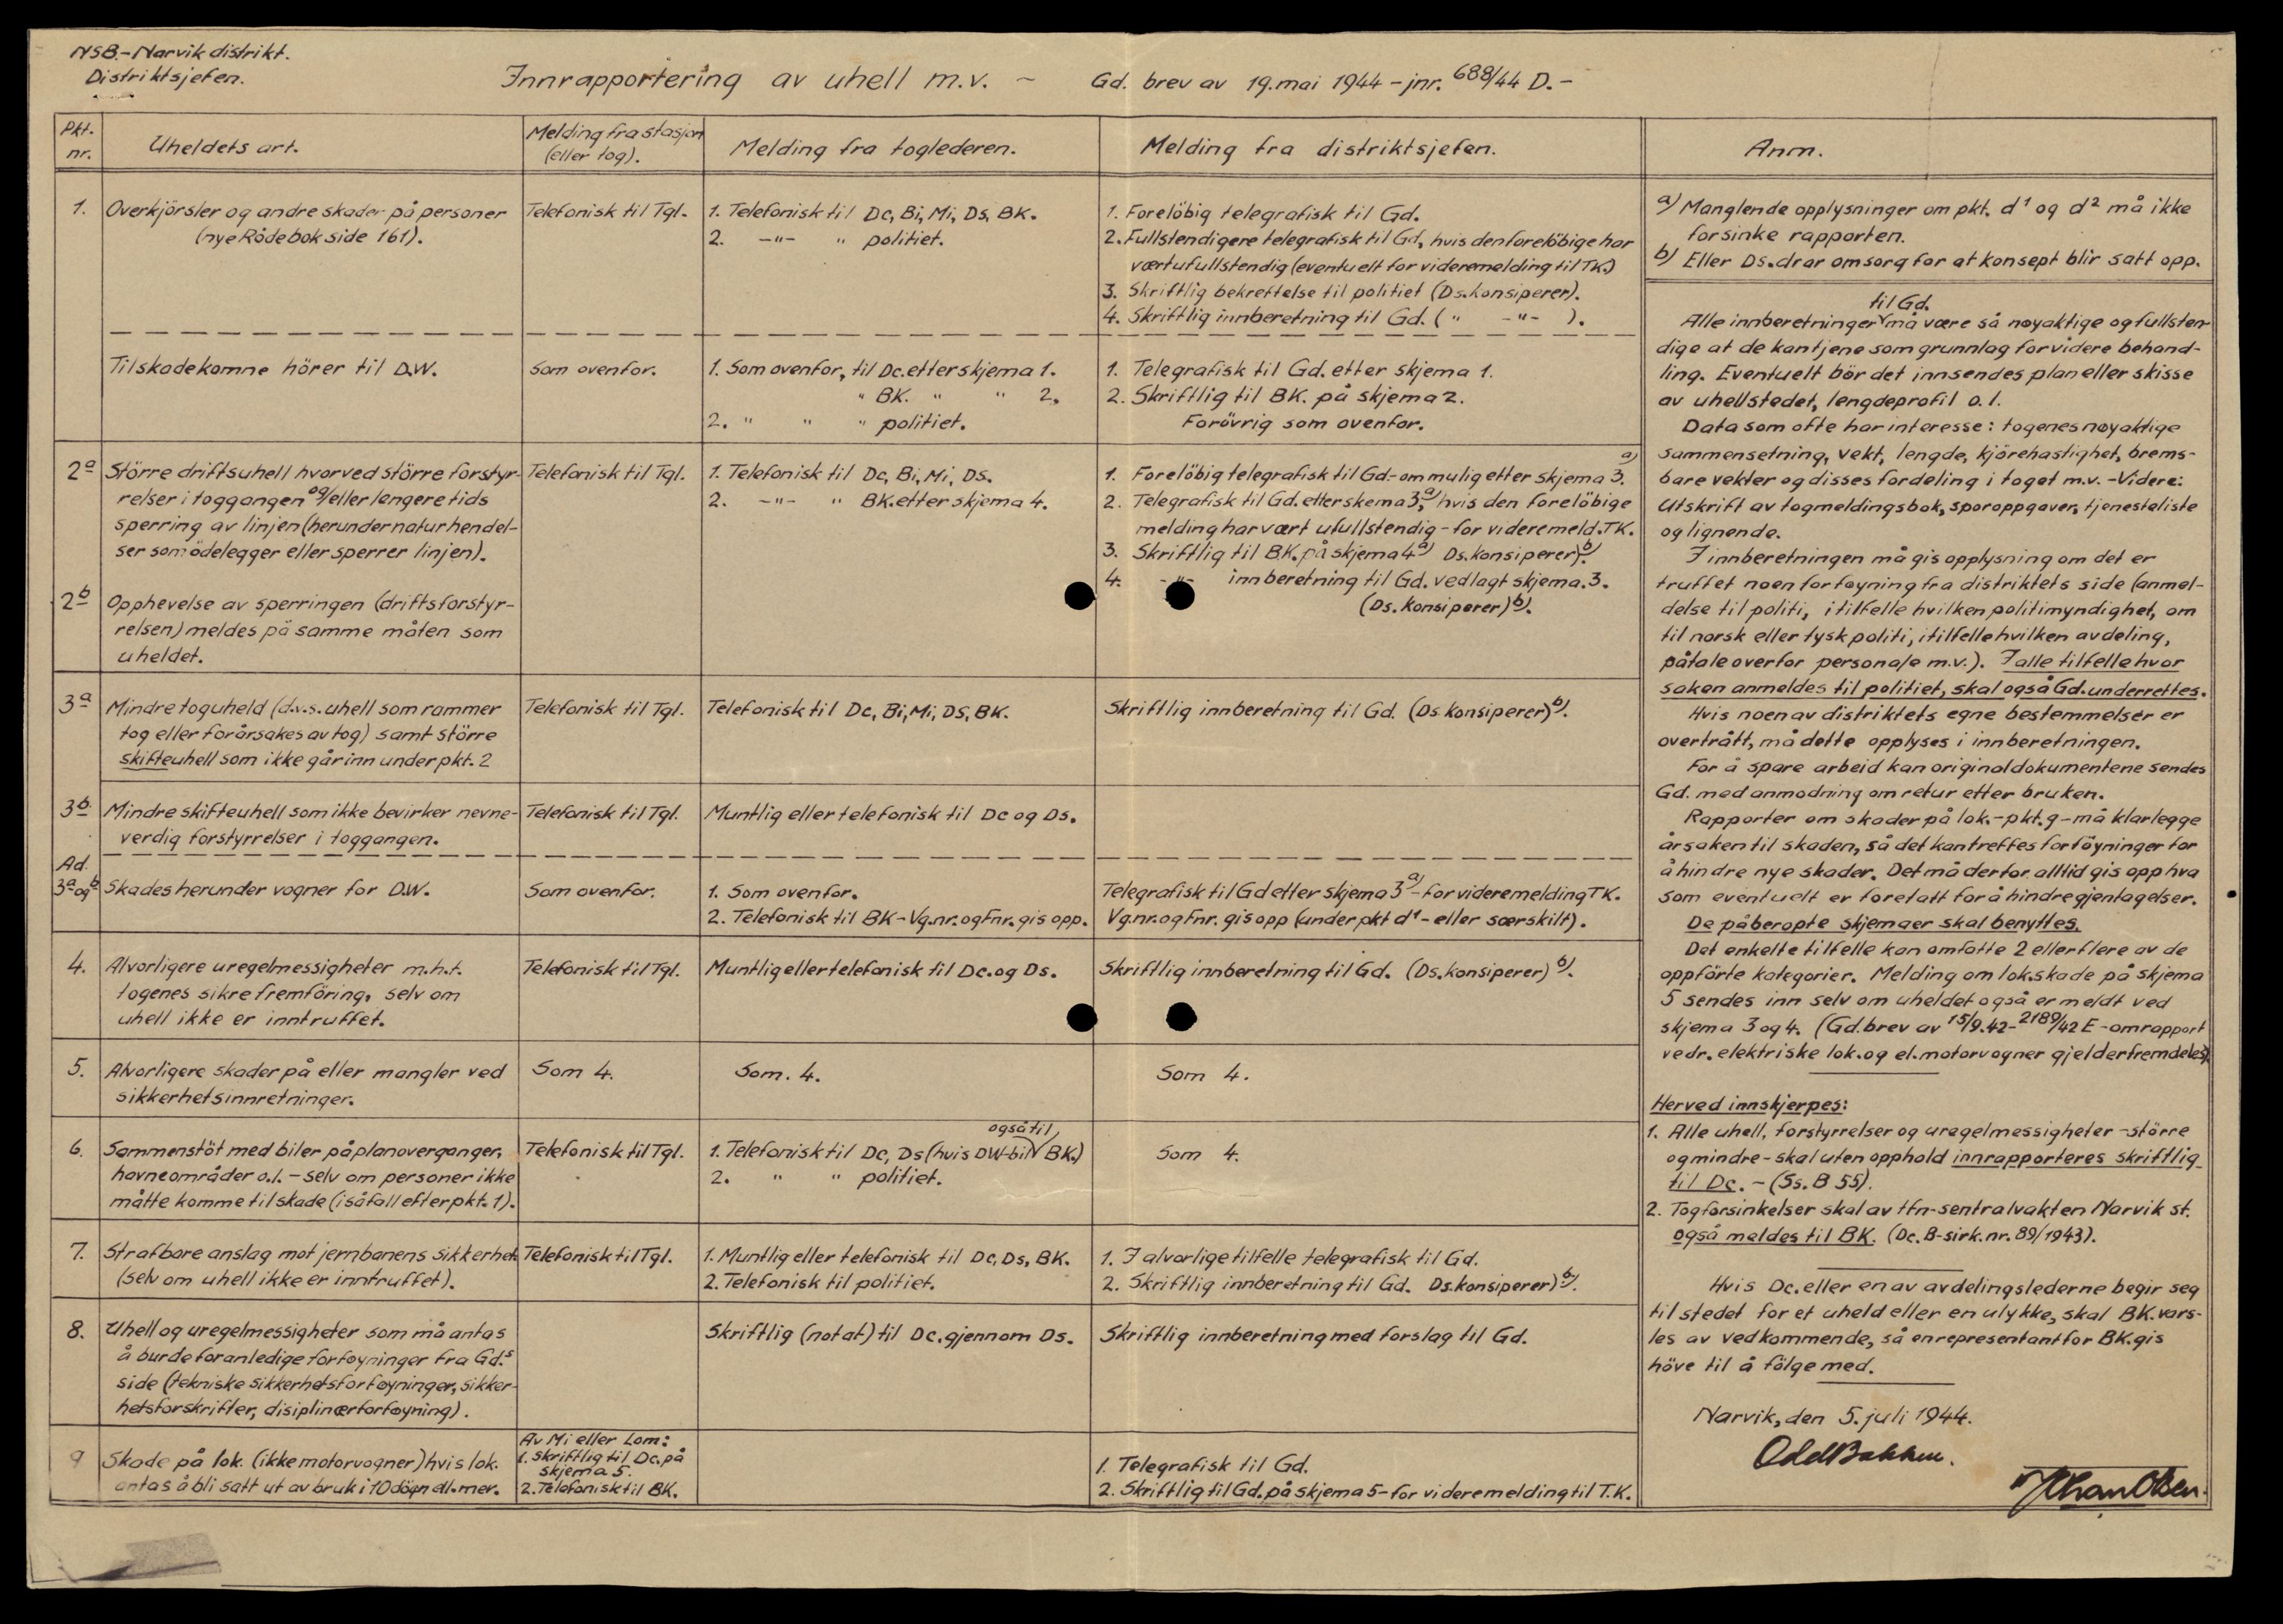 NSB.-Narvik distrikt.
Distriktsjefen.
Innrapportering av uhell m.v. – Gd. brev av 19. mai 1944 – jnr. 688/44 D. –
Pkt. nr.
Uheldets art.
Melding fra stasjon
(eller tog).
Melding fra toglederen.
Melding fra distriktsjefen.
Anm.
1.
Overkjörsler og andre skader på personer
(nye Röde bok side 161).
Telefonisk til Tgl.
1. Telefonisk til Dc, Bi, Mi, Ds, BK.
2. -"- " politiet.
1. Forelöbig telegrafisk til Gd.
2. Fullstendigere telegrafisk til Gd, hvis den forelöbige har
vært ufullstendig (eventuelt for videremelding til TK.)
3. Skriftlig bekreftelse til politiet (Ds. konsiperer).
4. Skriftlig innberetning til Gd. ( " -"- ).
Tilskadekomne hörer til D.W.
Som ovenfor.
1. Som ovenfor, til Dc. etter skjema 1.
" BK. " " 2.
2. " " " politiet.
1. Telegrafisk til Gd. etter skjema 1.
2. Skriftlig til BK. på skjema 2.
Forövrig som ovenfor.
2a
Större driftsuhell hvorved större forstyr-
relser i toggangen og/eller lengere tids
sperring av linjen (herunder naturhendel-
ser som ödelegger eller sperrer linjen).
Telefonisk til Tgl.
1. Telefonisk til Dc, Bi, Mi, Ds.
2. -"- " BK. etter skjema 4.
1. Forelöbig telegrafisk til Gd.-om mulig etter skjema 3. a)
2. Telegrafisk til Gd. etter skema 3, a) hvis den forelöbige
melding har vært ufullstendig – for videremeld. TK.
3. Skriftlig til BK. på skjema 4 a) Ds. konsiperer) b).
4. -"- innberetning til Gd. vedlagt skjema. 3.
(Ds. konsiperer) b).
2b
Opphevelse av sperringen (driftsforstyr-
relsen) meldes på samme måten som
uheldet.
3a
Mindre toguheld (d.v.s. uhell som rammer
tog eller forårsakes av tog) samt större
skifteuhell som ikke går inn under pkt. 2
Telefonisk til Tgl.
Telefonisk til Dc, Bi, Mi, DS, BK.
Skriftlig innberetning til Gd. (Ds. konsiperer) b).
3b.
Mindre skifteuhell som ikke bevirker nevne-
verdig forstyrrelser i toggangen.
Telefonisk til Tgl.
Muntlig eller telefonisk til Dc og Ds.
Ad.
3a og b
Skades herunder vogner for D.W.
Som ovenfor.
1. Som ovenfor.
2. Telefonisk til BK – Vg.nr. og Fnr. gis opp.
Telegrafisk til Gd etter skjema 3 a) – for videremelding TK.
Vg.nr. og Fnr. gis opp (under pkt d1 – eller særskilt).
4.
Alvorligere uregelmessigheter m.h.t.
togenes sikre fremföring, selv om
uhell ikke er inntruffet.
Telefonisk til Tgl.
Muntlig eller telefonisk til Dc. og Ds.
Skriftlig innberetning til Gd. (Ds. konsiperer) b).
5.
Alvorligere skader på eller mangler ved
sikkerhetsinnretninger.
Som 4.
Som. 4.
Som 4.
6.
Sammenstöt med biler på planoverganger,
havneområder o.l. – selv om personer ikke
måtte komme til skade (i så fall efter pkt. 1).
Telefonisk til Tgl.
1. Telefonisk til Dc, Ds (hvis DW-bil også til BK.)
2. " " politiet.
Som 4.
7.
Strafbare anslag mot jernbanens sikkerhet
(selv om uhell ikke er inntruffet).
Telefonisk til Tgl.
1. Muntlig eller telefonisk til Dc, Ds, BK.
2. Telefonisk til politiet.
1. I alvorlige tilfelle telegrafisk til Gd.
2. Skriftlig innberetning til Gd. Ds. konsiperer) b).
8.
Uhell og uregelmessigheter som må antas
å burde foranledige forføyninger fra Gd.s
side (tekniske sikkerhetsforføyninger, sikker-
hetsforskrifter, disiplinærforføyning).
Skriftlig (notat) til Dc. gjennom Ds.
Skriftlig innberetning med forslag til Gd.
9
Skade på lok. (ikke motorvogner) hvis lok.
antas å bli satt ut av bruk i 10 dögn el. mer.
Av Mi eller Lom:
1. Skriftlig til Dc. på
skjema 5.
2. Telefonisk til BK.
1. Telegrafisk til Gd.
2. Skriftlig til Gd. på skjema 5 – for videremelding til T.K.
a) Manglende opplysninger om pkt. d1 og d2 må ikke
forsinke rapporten.
b) Eller Ds. drar omsorg for at konsept blir satt opp.
Alle innberetninger til Gd. må være så nøyaktige og fullsten-
dige at de kan tjene som grunnlag for videre behand-
ling. Eventuelt bör det innsendes plan eller skisse
av uhellstedet, lengdeprofil o.l.
Data som ofte har interesse: togenes nøyaktige
sammensetning, vekt, lengde, kjörehastighet, brems-
bare vekter og disses fordeling i toget m.v. – Videre:
Utskrift av togmeldingsbok, sporoppgaver, tjenesteliste
og lignende.
I innberetningen må gis opplysning om det er
truffet noen forføyning fra distriktets side (anmel-
delse til politi, i tilfelle hvilken politimyndighet, om
til norsk eller tysk politi, i tilfelle hvilken avdeling,
påtale overfor personale m.v.). I alle tilfelle hvor
saken anmeldes til politiet, skal også Gd. underrettes.
Hvis noen av distriktets egne bestemmelser er
overtrått, må dette opplyses i innberetningen.
For å spare arbeid kan originaldokumentene sendes
Gd. med anmodning om retur etter bruken.
Rapporter om skader på lok. – pkt. 9 – må klarlegge
årsaken til skaden, så det kan treffes forföyninger for
å hindre nye skader. Det må derfor alltid gis opp hva
som eventuelt er foretatt for å hindre gjentagelser.
De påberopte skjemaer skal benyttes.
Det enkelte tilfelle kan omfatte 2 eller flere av de
oppförte kategorier. Melding om lok.skade på skjema
5 sendes inn selv om uheldet også er meldt ved
skjema 3 og 4. (Gd. brev av 15/9.42 – 2189/42 E – om rapport
vedr. elektriske lok. og el. motorvogner gjelder fremdeles).
Herved innskjerpes:
1. Alle uhell, forstyrrelser og uregelmessigheter – större
og mindre – skal uten opphold innrapporteres skriftlig
til Dc. – (Ss. B 55).
2. Togforsinkelser skal av tfn-sentralvakten Narvik st.
også meldes til BK. (Dc. B-sirk. nr. 89/1943).
Hvis Dc. eller en av avdelingslederne begir seg
til stedet for et uheld eller en ulykke, skal BK. vars-
les av vedkommende, så en representant for BK. gis
höve til å fölge med.
Narvik, den 5. juli 1944.
Odd Bakken.
Johan Olsen.